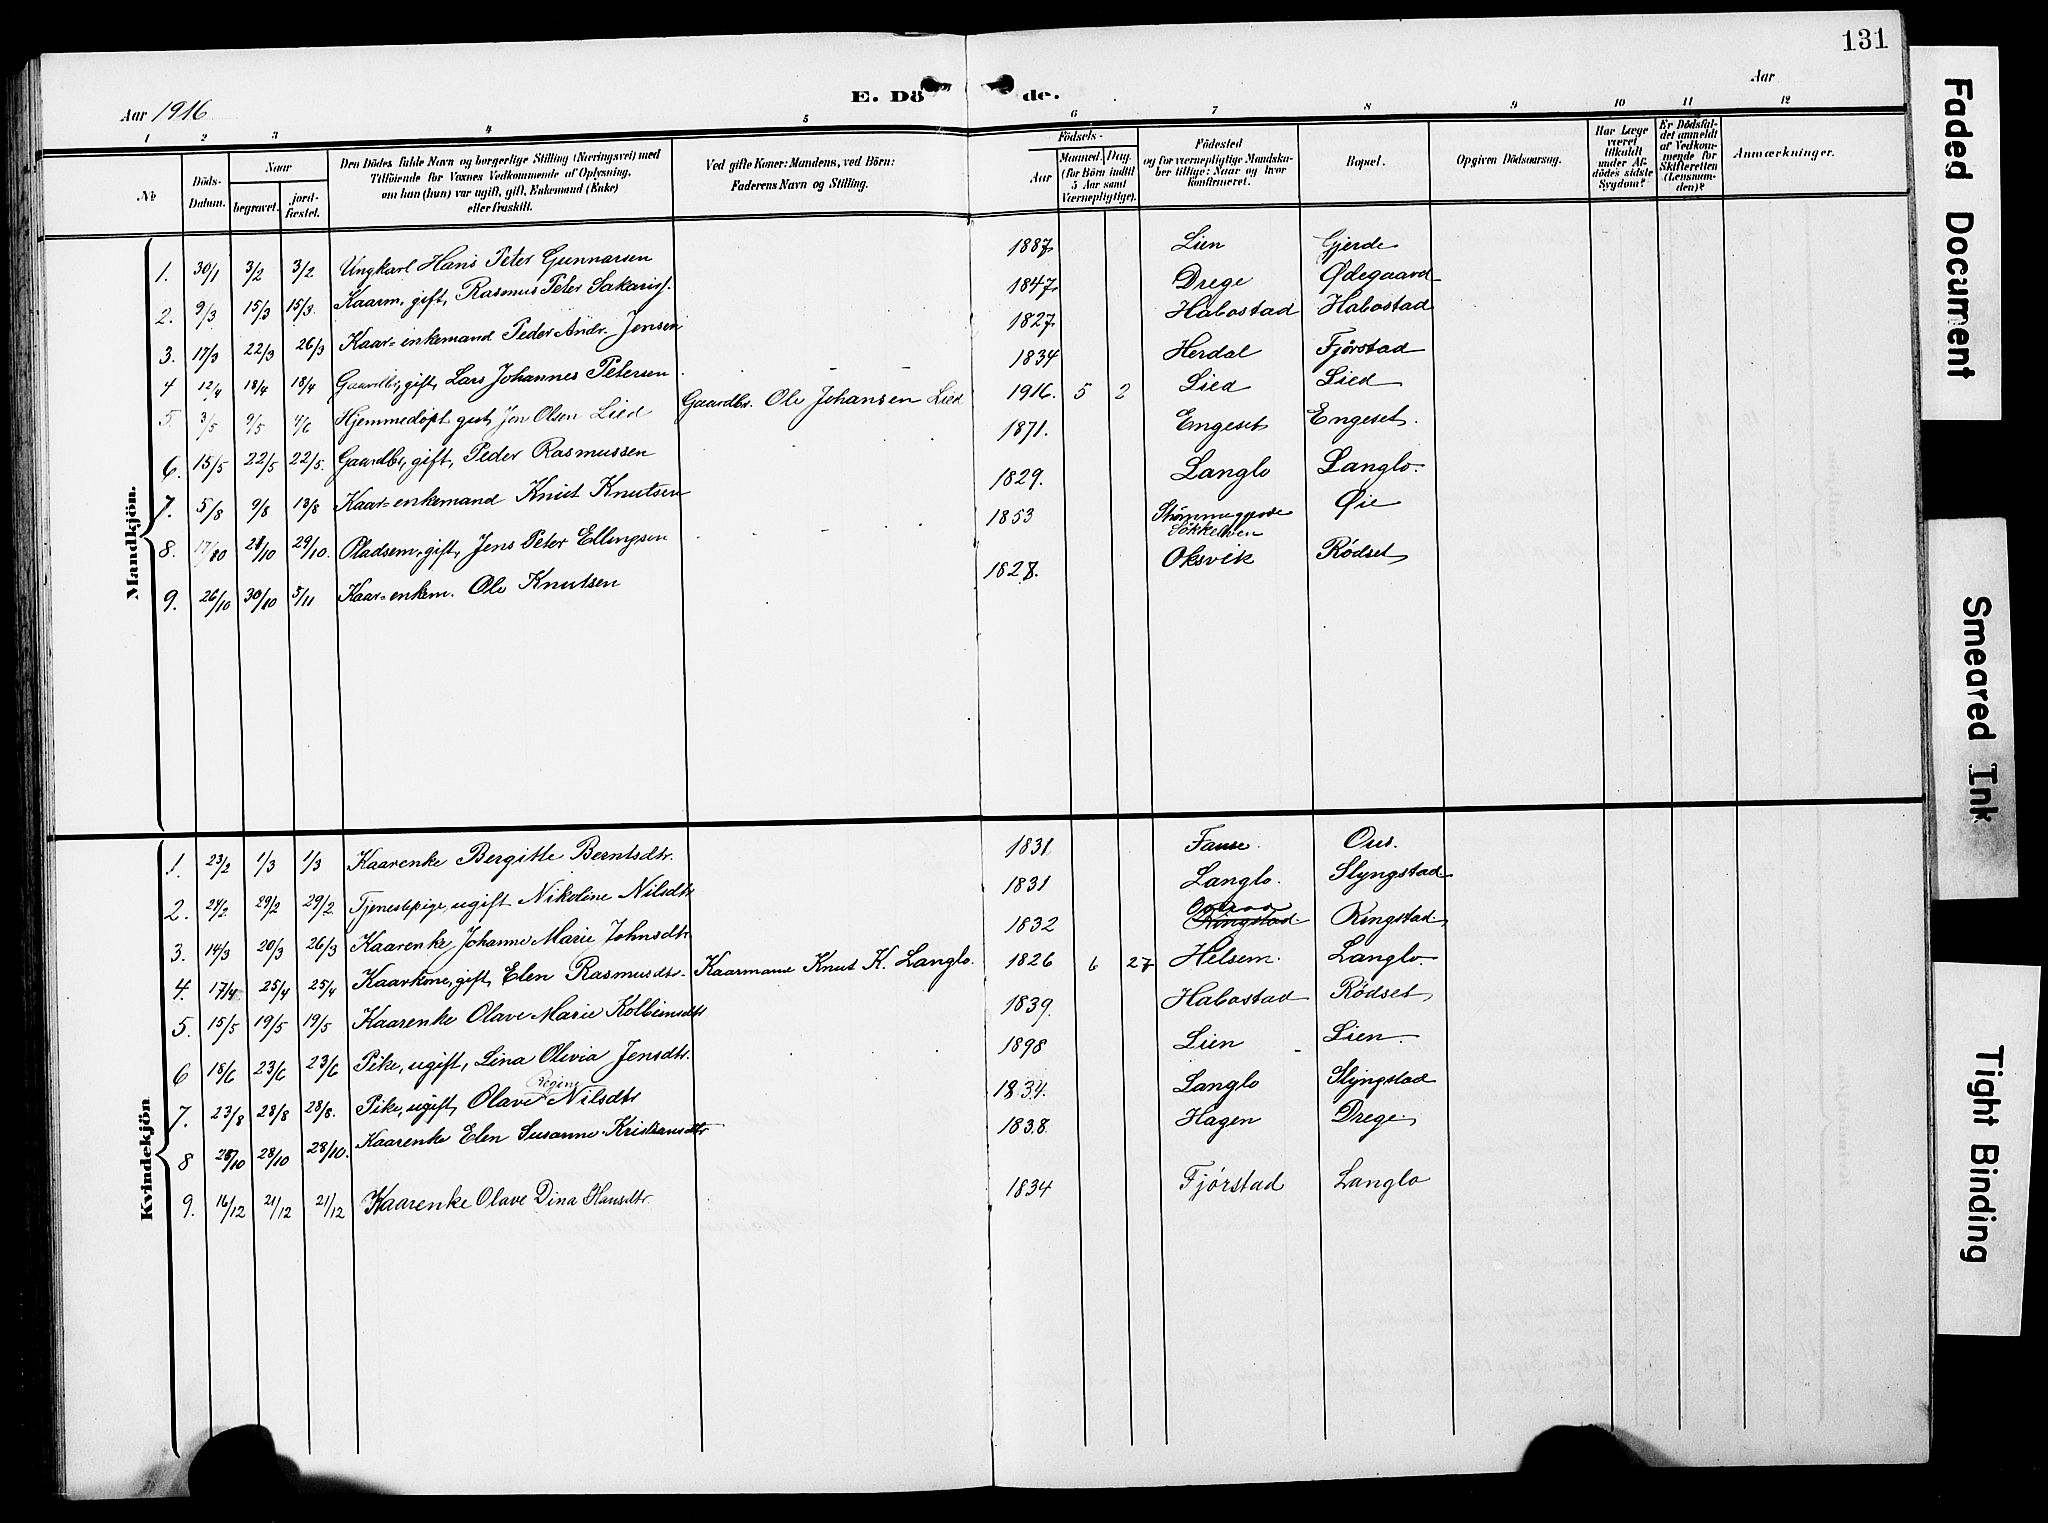 131
Aar 1916
E. Dö de.
Aar
1 2 3 4 5 6 7 8 9 10 11 12
No
Döds-Datum.
Naar
begravet.
jord-fæstet.
Den Dödes fulde Navn og borgerlige Stilling (Næringsvei) med
Tilföiende for Voxnes Vedkommende af Oplysning,
om han (hun) var ugift, gift, Enkemand (Enke)
eller fraskilt.
Ved gifte Koner: Mandens, ved Börn:
Faderens Navn og Stilling.
Födsels-
Aar
Maaned. Dag.
(for Börn indtil
5 Aar samt
Værnepligtige).
Födested
og for værnepligtige Mandska-
ber tillige: Naar og hvor
konfirmeret.
Bopæl.
Opgiven Dödsaarsag.
Har Læge
været
tilkaldt
under Af-
dödes sidste
Sygdom?
Er Dödsfal-
det anmeldt
af Vedkom-
mende for
Skifteretten
(Lensman-
den)?
Anmærkninger.
Mandkjön.
1. 30/1 3/2 3/2 Ungkarl Hans Peter Gunnarsen 1887 Lien Gjerde
2. 9/3 15/3 15/3. Kaarm, gift, Rasmus Peter Sakarisf. 1847 Drege Ødegaard
3. 17/3 22/3 26/3 Kaar=enkemand Peder Andr. Jensen 1827 Habostad Habostad
4 12/4 18/4 18/4 Gaardbr, gift, Lars Johannes Petersen 1834 Herdal Fjørstad
5. 3/5 9/5 4/6 Hjemmedøpt gut, Jon Olsen Lied Gaardbr. Ole Johansen Lied 1916. 5 2 Lied Lied
6. 15/5 22/5 22/5. Gaardbr, gift, Peder Rasmussen 1871. Engeset Engeset.
7. 5/8 9/8 13/8 Kaar=enkemand Knut Knutsen 1829. Langlo Langlo.
8. 17/10 21/10 29/10. Pladsem, gift, Jens Peter Ellingsen 1853 Strømmegjerde Søkkelven Øie
9. 26/10 30/10 5/11 Kaar=enkem. Ole Knutsen 1828. Oksvik Rødset
Kvindekjön
1. 23/2 1/3 1/3 Kaarenke Bergitte Berntsdtr. 1831 Fause. Ous.
2. 24/2 29/2 29/2. Tjenestepige, ugift Nikoline Nilsdtr 1831 Langlo. Slyngstad
3. 14/3 20/3 26/3 Kaarenke Johanne Marie Johnsdtr 1832 Ringstad Ringstad
4. 17/4 25/4 25/4 Kaarkone, gift, Elen Rasmusdtr. Kaarmand Knut K. Langlo. 1826 6 27 Helsem. Langlo.
5. 15/5 19/5 19/5 Kaarenke Olave Marie Kolbeinsdtr 1839. Habostad Rødset
6 18/6 23/6 23/6 Pike, ugift, Lina Olivia Jensdtr. 1898 Lien Lien.
7. 23/8 28/8 28/8. Pike, ugift, Olave Regine Nilsdtr 1834. Langlo Slyngstad
8 23/10 28/10 28/10. Kaarenke Elen Susanne Kristiansdtr 1838. Hagen Drege
9. 16/12 21/12 21/12 Kaarenke Olave Dina Hansdtr. 1834 Fjørstad Langlo
Faded Document
Smeared Ink
Tight Binding